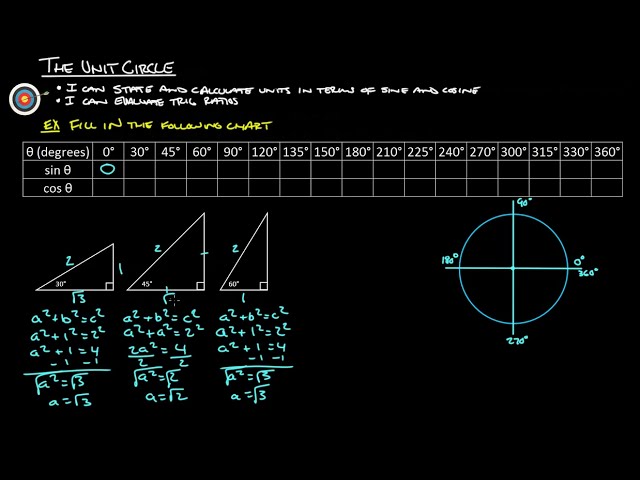 THE UNIT CIRCLE
• I CAN STATE AND CALCULATE UNITS IN TERMS OF SINE AND COSINE
• I CAN EVALUATE TRIG RATIOS
EX FILL IN THE FOLLOWING CHART
θ (degrees) 0° 30° 45° 60° 90° 120° 135° 150° 180° 210° 225° 240° 270° 300° 315° 330° 360°
sin θ 0
cos θ
2 1 30° √3
2 45°
2 60° 1
90°
180° 0° 360°
270°
a²+b²=c² a²+b²=c² a²+b²=c²
a²+1²=2² a²+a²=2² a²+1²=2²
a²+1=4 2a²=4 a²+1=4
-1 -1 2 2 -1 -1
√a²=√3 √a²=√2 √a²=√3
a=√3 a=√2 a=√3